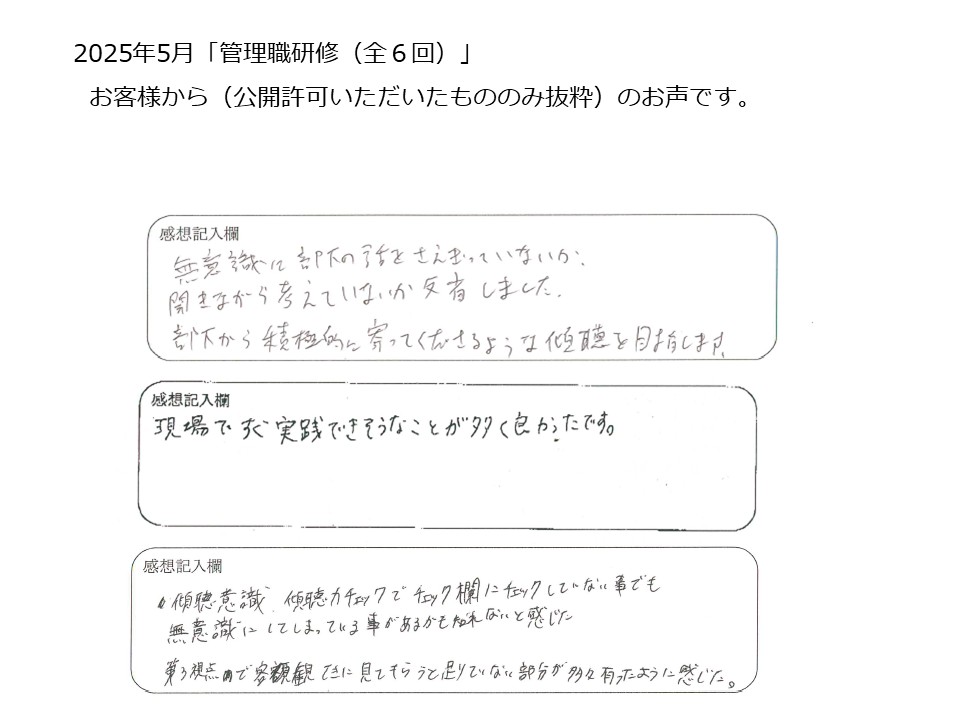 2025年5月「管理職研修（全６回）」
お客様から（公開許可いただいたもののみ抜粋）のお声です。
感想記入欄
無意識に部下の話をさえぎっていないか、
聞きながら考えていないか反省しました.
部下から積極的に寄ってくださるような傾聴を目指します
感想記入欄
現場ですぐ実践できそうなことが多く良かったです。
感想記入欄
傾聴意識、傾聴力チェックでチェック欄にチェックしていない事でも
無意識にしてしまっている事があるかも知れないと感じた
第3視点で客観てきに見てもらうと足りていない部分が多々有ったように感じた。